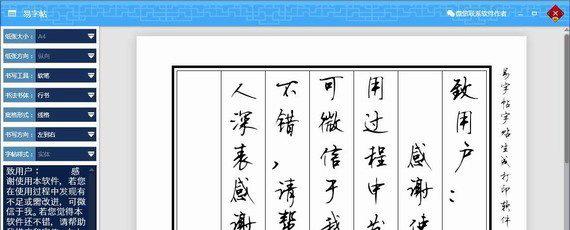 易字帖
微信联系软件作者
纸张大小： A4
纸张方向： 纵向
书写工具： 软笔
书法书体： 行书
底格形式： 线格
书写方向： 左到右
字帖样式： 实体
致用户： 感
谢使用本软件，若您
在使用过程中发现有
不足或需改进，可微
信于我。若您觉得本
软件还不错，请帮助
易字帖字帖生成打印软件
致用户：
感谢使
用过程中发
可微信于我
不错，请帮
人深表感谢